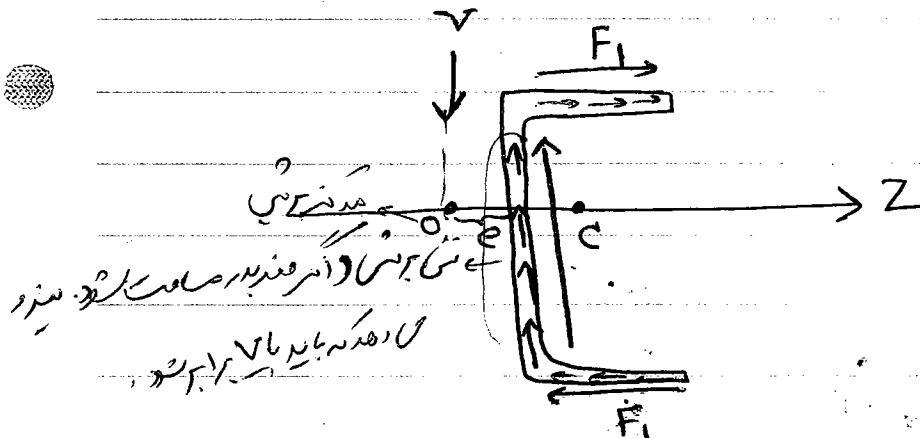 V
F₁
Z
مرکز برشی
O
e
C
تنش برشی (اگر ضربدر مساحت شود. نیرو
می دهد که باید با V برابر شود.
F₁